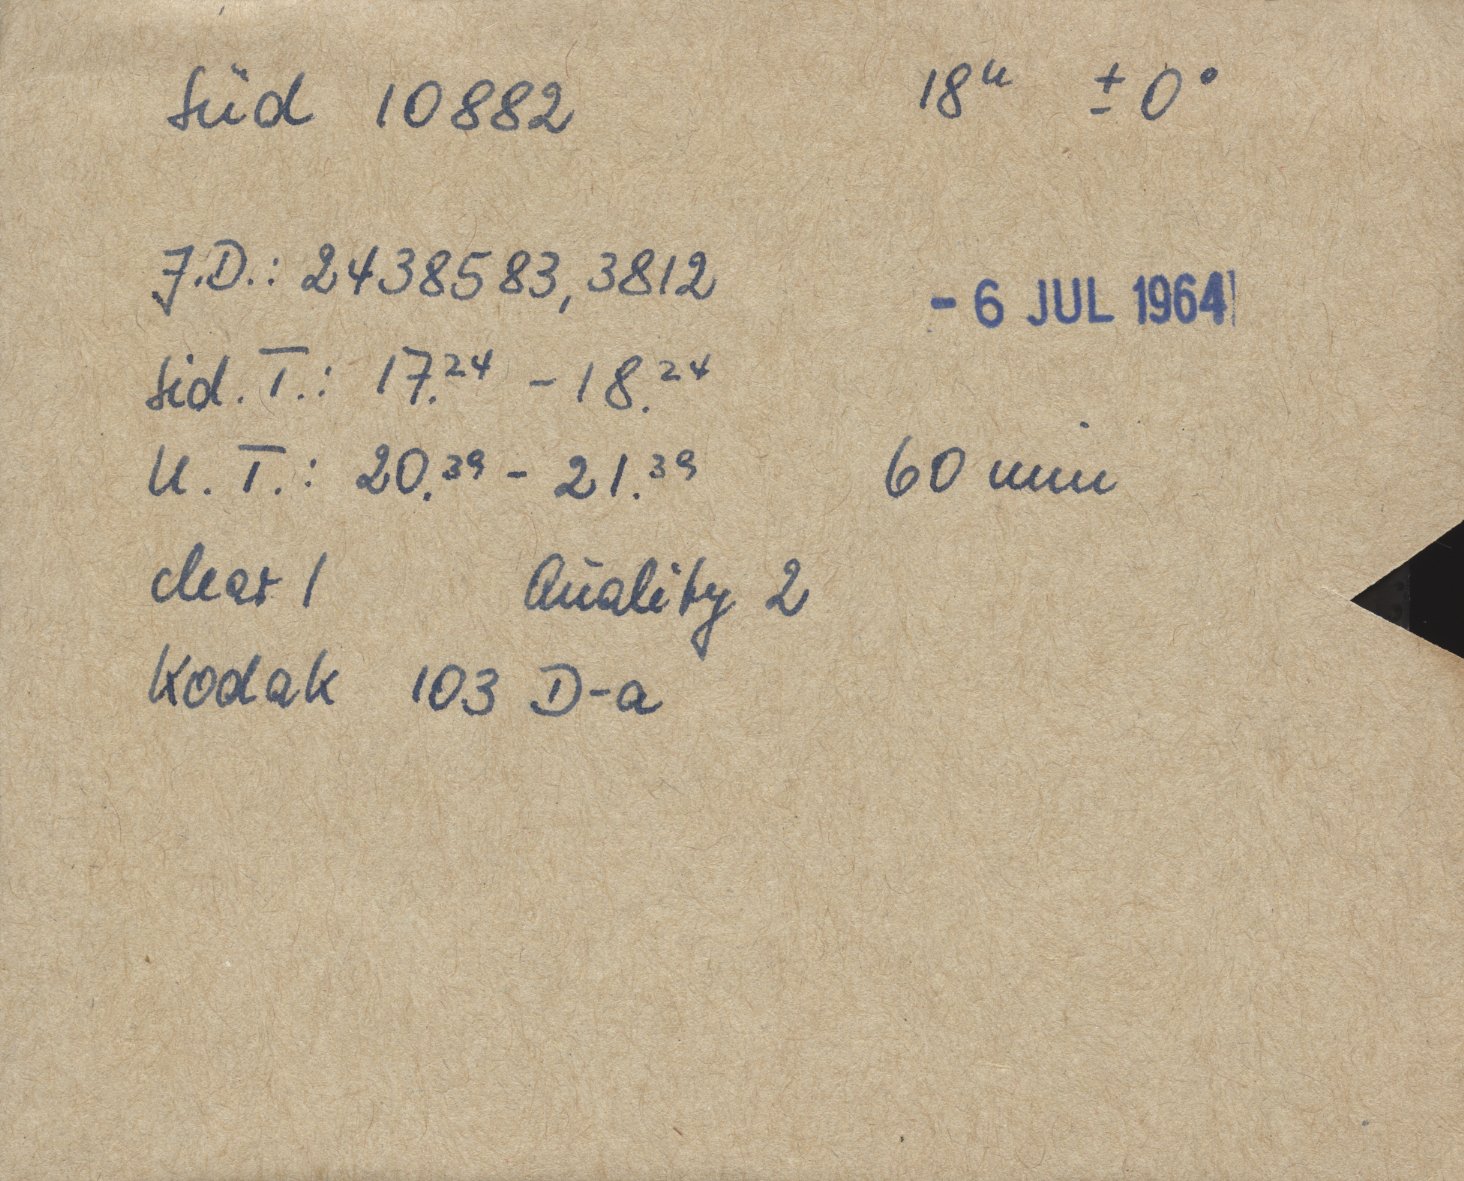 Süd 10882 18ʰ ± 0°
J.D.: 2438583,3812 - 6 JUL 1964
Sid. T.: 17.²⁴ - 18.²⁴
U. T.: 20.³⁹ - 21.³⁹ 60 min
clear 1 Quality 2
Kodak 103 D-a